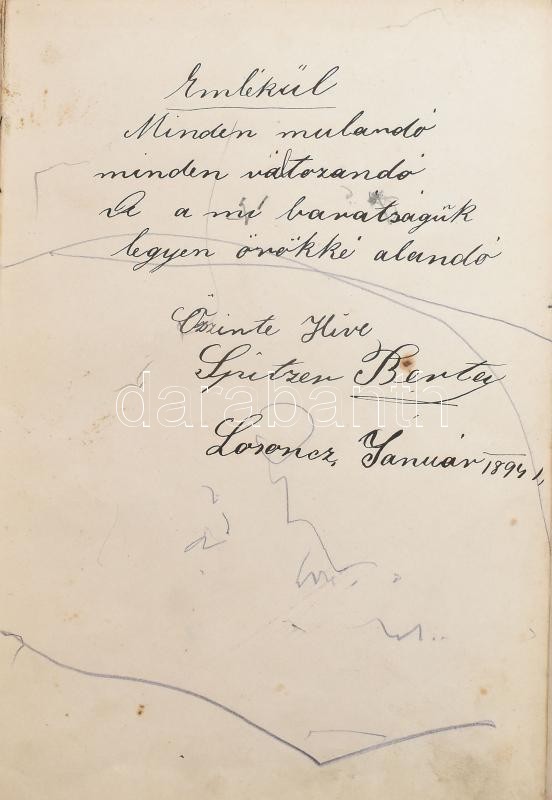 Emlékül
Minden mulandó
minden vátozandó
De a mi baratságűk
legyen örökké alandó
Őszinte Hive
Spitzer Berta
darabanth
Losoncz, Január 1894 1,